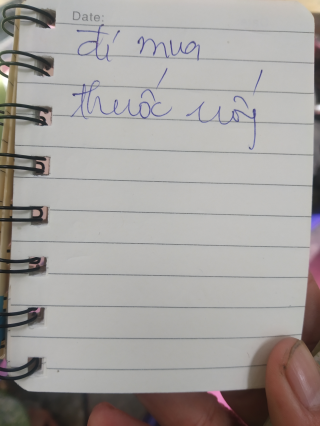 Date:
đi mua
thuốc uống